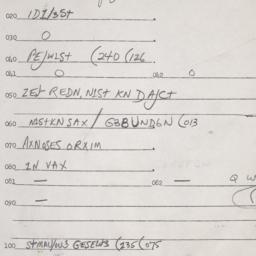 020 IDI/3St
030 O
040 PE/WLSt (240 (126
041 O 042 O
050 ZEt REDN, NISt KN DA/Ct
060 MStKNSAX / GBBUNDGN (013
070 AXNOSES ORXIM
080 IN VAX
081 — 082 — Q W
090 —
100 GESELWS (235 (075